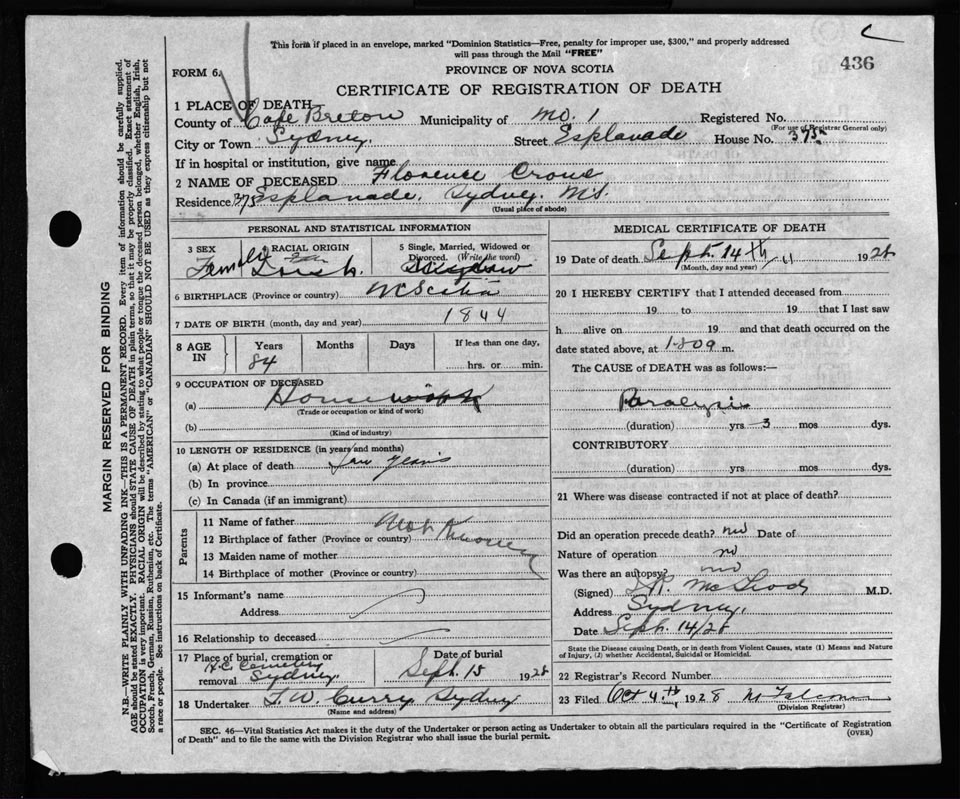 This form if placed in an envelope, marked "Dominion Statistics—Free, penalty for improper use, $300," and properly addressed
will pass through the Mail "FREE"
436
FORM 6.
PROVINCE OF NOVA SCOTIA
CERTIFICATE OF REGISTRATION OF DEATH
1 PLACE OF DEATH
County of Cape Breton Municipality of No. 1 Registered No.
(For use of Registrar General only)
City or Town Sydney. Street Esplanade House No. 375
If in hospital or institution, give name
2 NAME OF DECEASED Florence
Residence 375 Esplanade. Sydney. N.S.
(Usual place of abode)
PERSONAL AND STATISTICAL INFORMATION
3 SEX Female
4 RACIAL ORIGIN
5 Single, Married, Widowed or
Divorced. (Write the word)
6 BIRTHPLACE (Province or country) N Scotia
7 DATE OF BIRTH (month, day and year) 1844
8 AGE IN Years 84 Months Days If less than one day,
hrs. or min.
9 OCCUPATION OF DECEASED
(a) Housework
(Trade or occupation or kind of work)
(b)
(Kind of industry)
10 LENGTH OF RESIDENCE (in years and months)
(a) At place of death years
(b) In province
(c) In Canada (if an immigrant)
Parents
11 Name of father Not Known
12 Birthplace of father (Province or country)
13 Maiden name of mother
14 Birthplace of mother (Province or country)
15 Informant's name
Address
16 Relationship to deceased
17 Place of burial, cremation or removal H.C. Cemetery Sydney. Date of burial Sept. 15 1928
18 Undertaker F. W. Curry Sydney
(Name and address)
MEDICAL CERTIFICATE OF DEATH
19 Date of death Sept. 14th 1928
(Month, day and year)
20 I HEREBY CERTIFY that I attended deceased from
19 to 19 that I last saw
h alive on 19 and that death occurred on the
date stated above, at m.
The CAUSE of DEATH was as follows:—
Paralysis
(duration) yrs 3 mos dys.
CONTRIBUTORY
(duration) yrs mos dys.
21 Where was disease contracted if not at place of death?
Did an operation precede death? no Date of
Nature of operation no
Was there an autopsy? no
(Signed) McLeod M.D.
Address Sydney.
Date Sept. 14/28
State the Disease causing Death, or in death from Violent Causes, state (1) Means and Nature
of Injury, (2) whether Accidental, Suicidal or Homicidal.
22 Registrar's Record Number
23 Filed Oct 4th 1928
(Division Registrar)
SEC. 46—Vital Statistics Act makes it the duty of the Undertaker or person acting as Undertaker to obtain all the particulars required in the "Certificate of Registration
of Death" and to file the same with the Division Registrar who shall issue the burial permit.
(OVER)
MARGIN RESERVED FOR BINDING
N.B.—WRITE PLAINLY WITH UNFADING INK—THIS IS A PERMANENT RECORD. Every item of information should be carefully supplied.
AGE should be stated EXACTLY. PHYSICIANS should STATE CAUSE OF DEATH in plain terms, so that it may be properly classified. Exact statement of
OCCUPATION is very important. RACIAL ORIGIN will be described by stating to what people or tongue the deceased person belonged, whether English, Irish,
Scotch, French, German, Russian, Ruthenian, etc. The terms "AMERICAN" or "CANADIAN" SHOULD NOT BE USED as they express citizenship but not
a race or people. See instructions on back of Certificate.